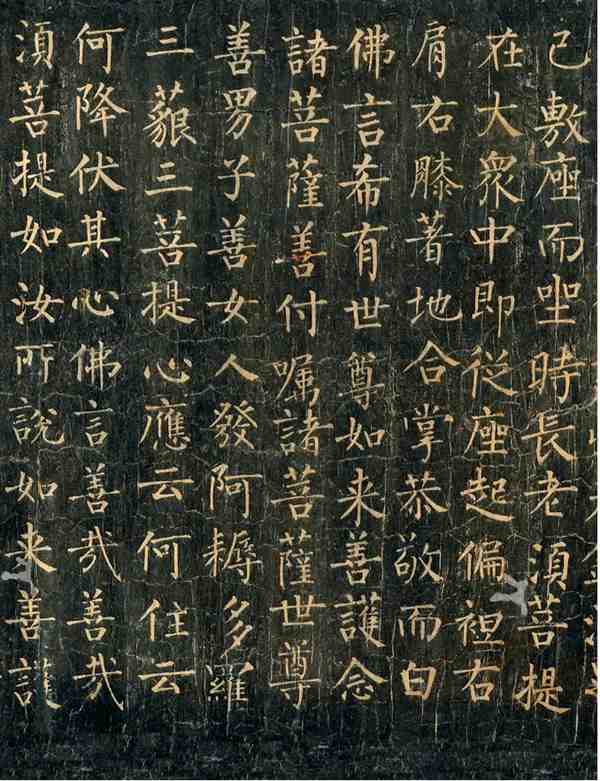 已敷座而坐時長老須菩提
在大眾中即從座起偏袒右
肩右膝著地合掌恭敬而白
佛言希有世尊如来善護念
諸菩薩善付嘱諸菩薩世尊
善男子善女人發阿耨多羅
三藐三菩提心應云何住云
何降伏其心佛言善哉善哉
須菩提如汝所說如来善護